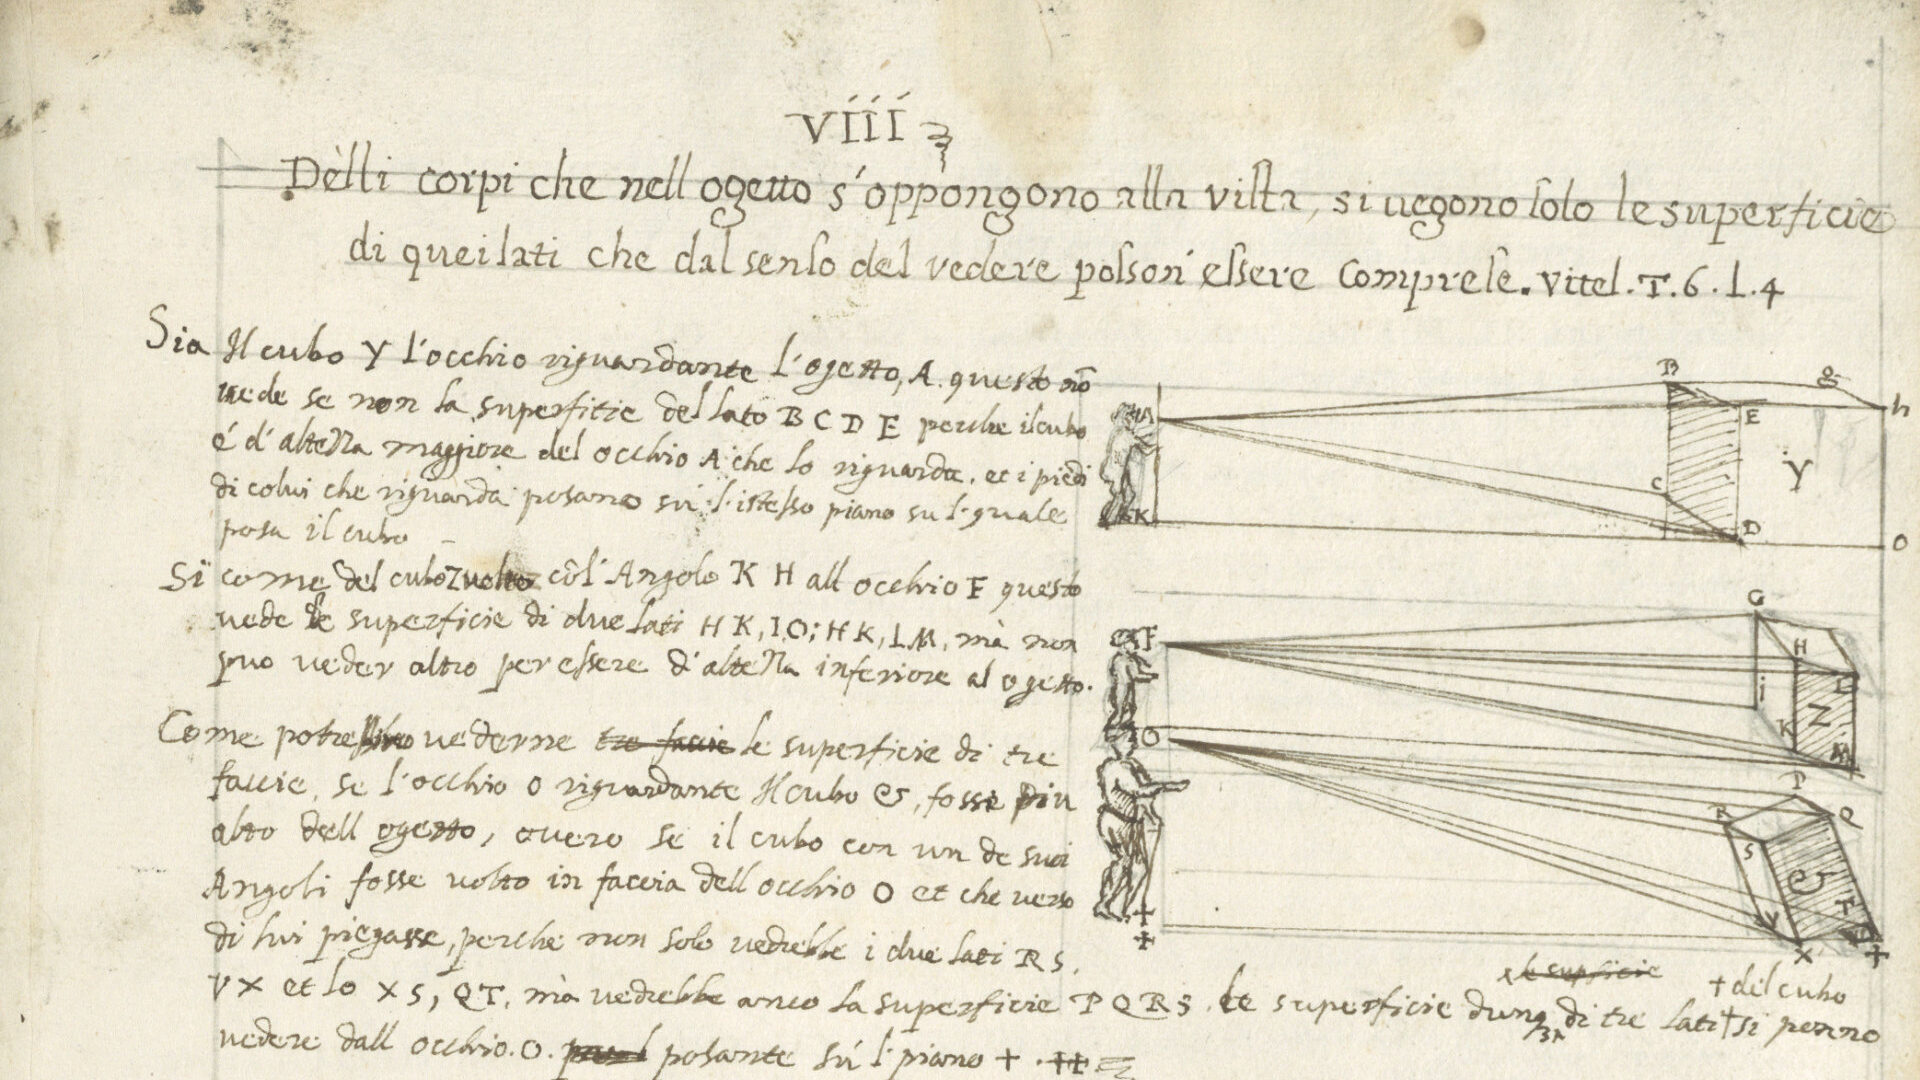 VIII
Dèlli corpi che nell ogetto s'oppongono alla vista, si uegono solo le superficie
di quei lati che dal senso del vedere posson' essere Comprese. Vitel. T. 6. l. 4
Sia Il cubo Y l'occhio riguardante l'ogetto, A. questo nō
uede se non la superfitie del lato B C D E perche il cubo
é d'altezza maggiore del occhio A che lo riguarda. et i piedi
di colui che riguarda posano sù l'istesso piano su l'quale
posa il cubo
Si come del cubo Z volto cōl' Angolo K H all occhio F questo
uede le superficie di due lati H K, I O; H K, L M, mà non
puo ueder altro per essere d'altezza inferiore al ogetto.
Come uederne tre faccie le superficie di tre
faccie, se l'occhio O riguardante Il cubo &, fosse piu
alto dell ogetto, overo se il cubo con un de suoi
Angoli fosse volto in faccia dell occhio O et che verso
di lui piegasse, perche non solo vedrebbe i due lati R S,
V X et lo X S, Q T, mà vedrebbe anco la superficie P Q R S. le superficie di tre lati + si ponno
le superficie
+ del cubo
vedere dall occhio. O. posante sù l' piano + . ++
B
g
h
A
E
Y
C
K
D
O
G
F
H
L
i
Z
K
M
O
P
R
Q
S
&
T
V
X
+
+
+